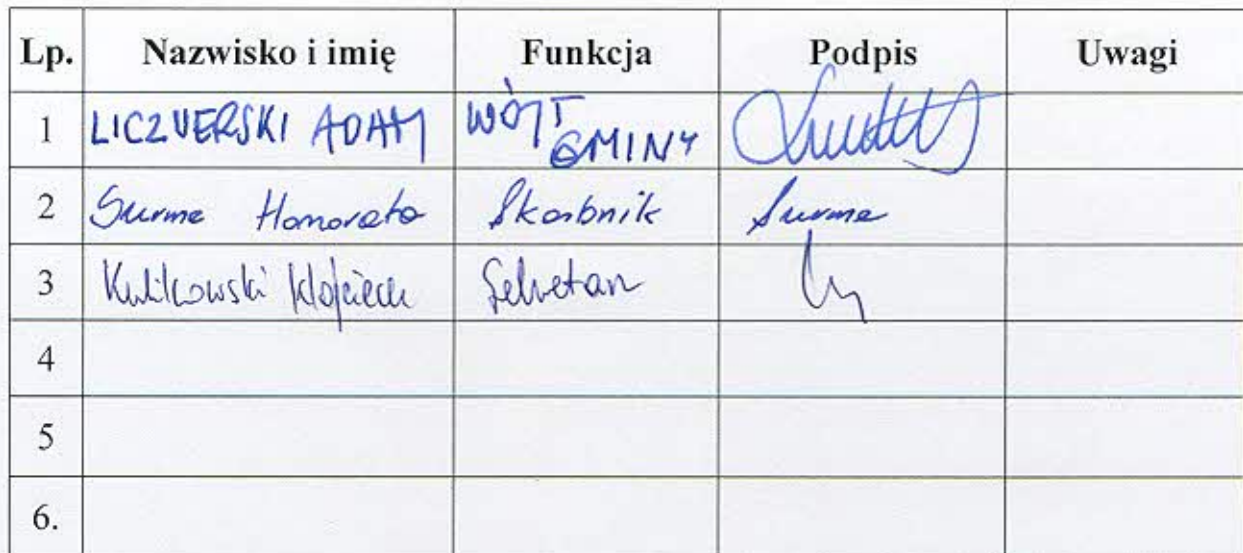 Lp. Nazwisko i imię Funkcja Podpis Uwagi
1 LICZNERSKI ADAM WÓJT GMINY
2 Surma Honorata Skarbnik Surma
3 Kulikowski Wojciech Sekretarz
4
5
6.